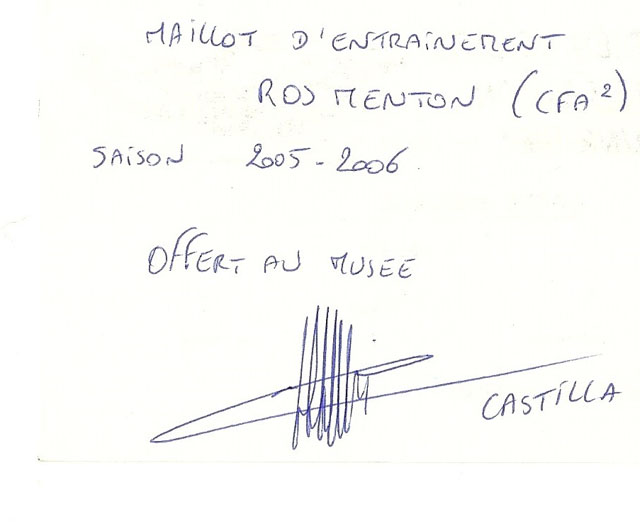 MAILLOT D'ENTRAINEMENT
ROS MENTON (CFA2)
SAISON 2005-2006
OFFERT AU MUSEE
CASTILLA